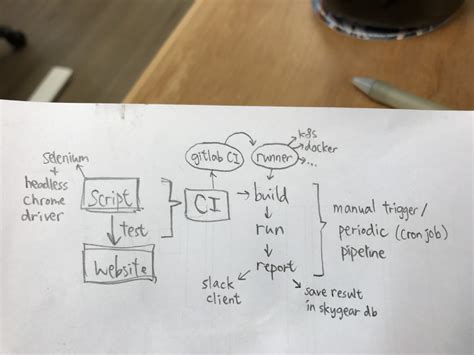 selenium
+
headless
chrome
driver
script
test
website
CI
gitlab CI
runner
k8s
docker
...
build
run
report
slack
client
save result
in skygear db
manual trigger/
periodic (cronjob)
pipeline